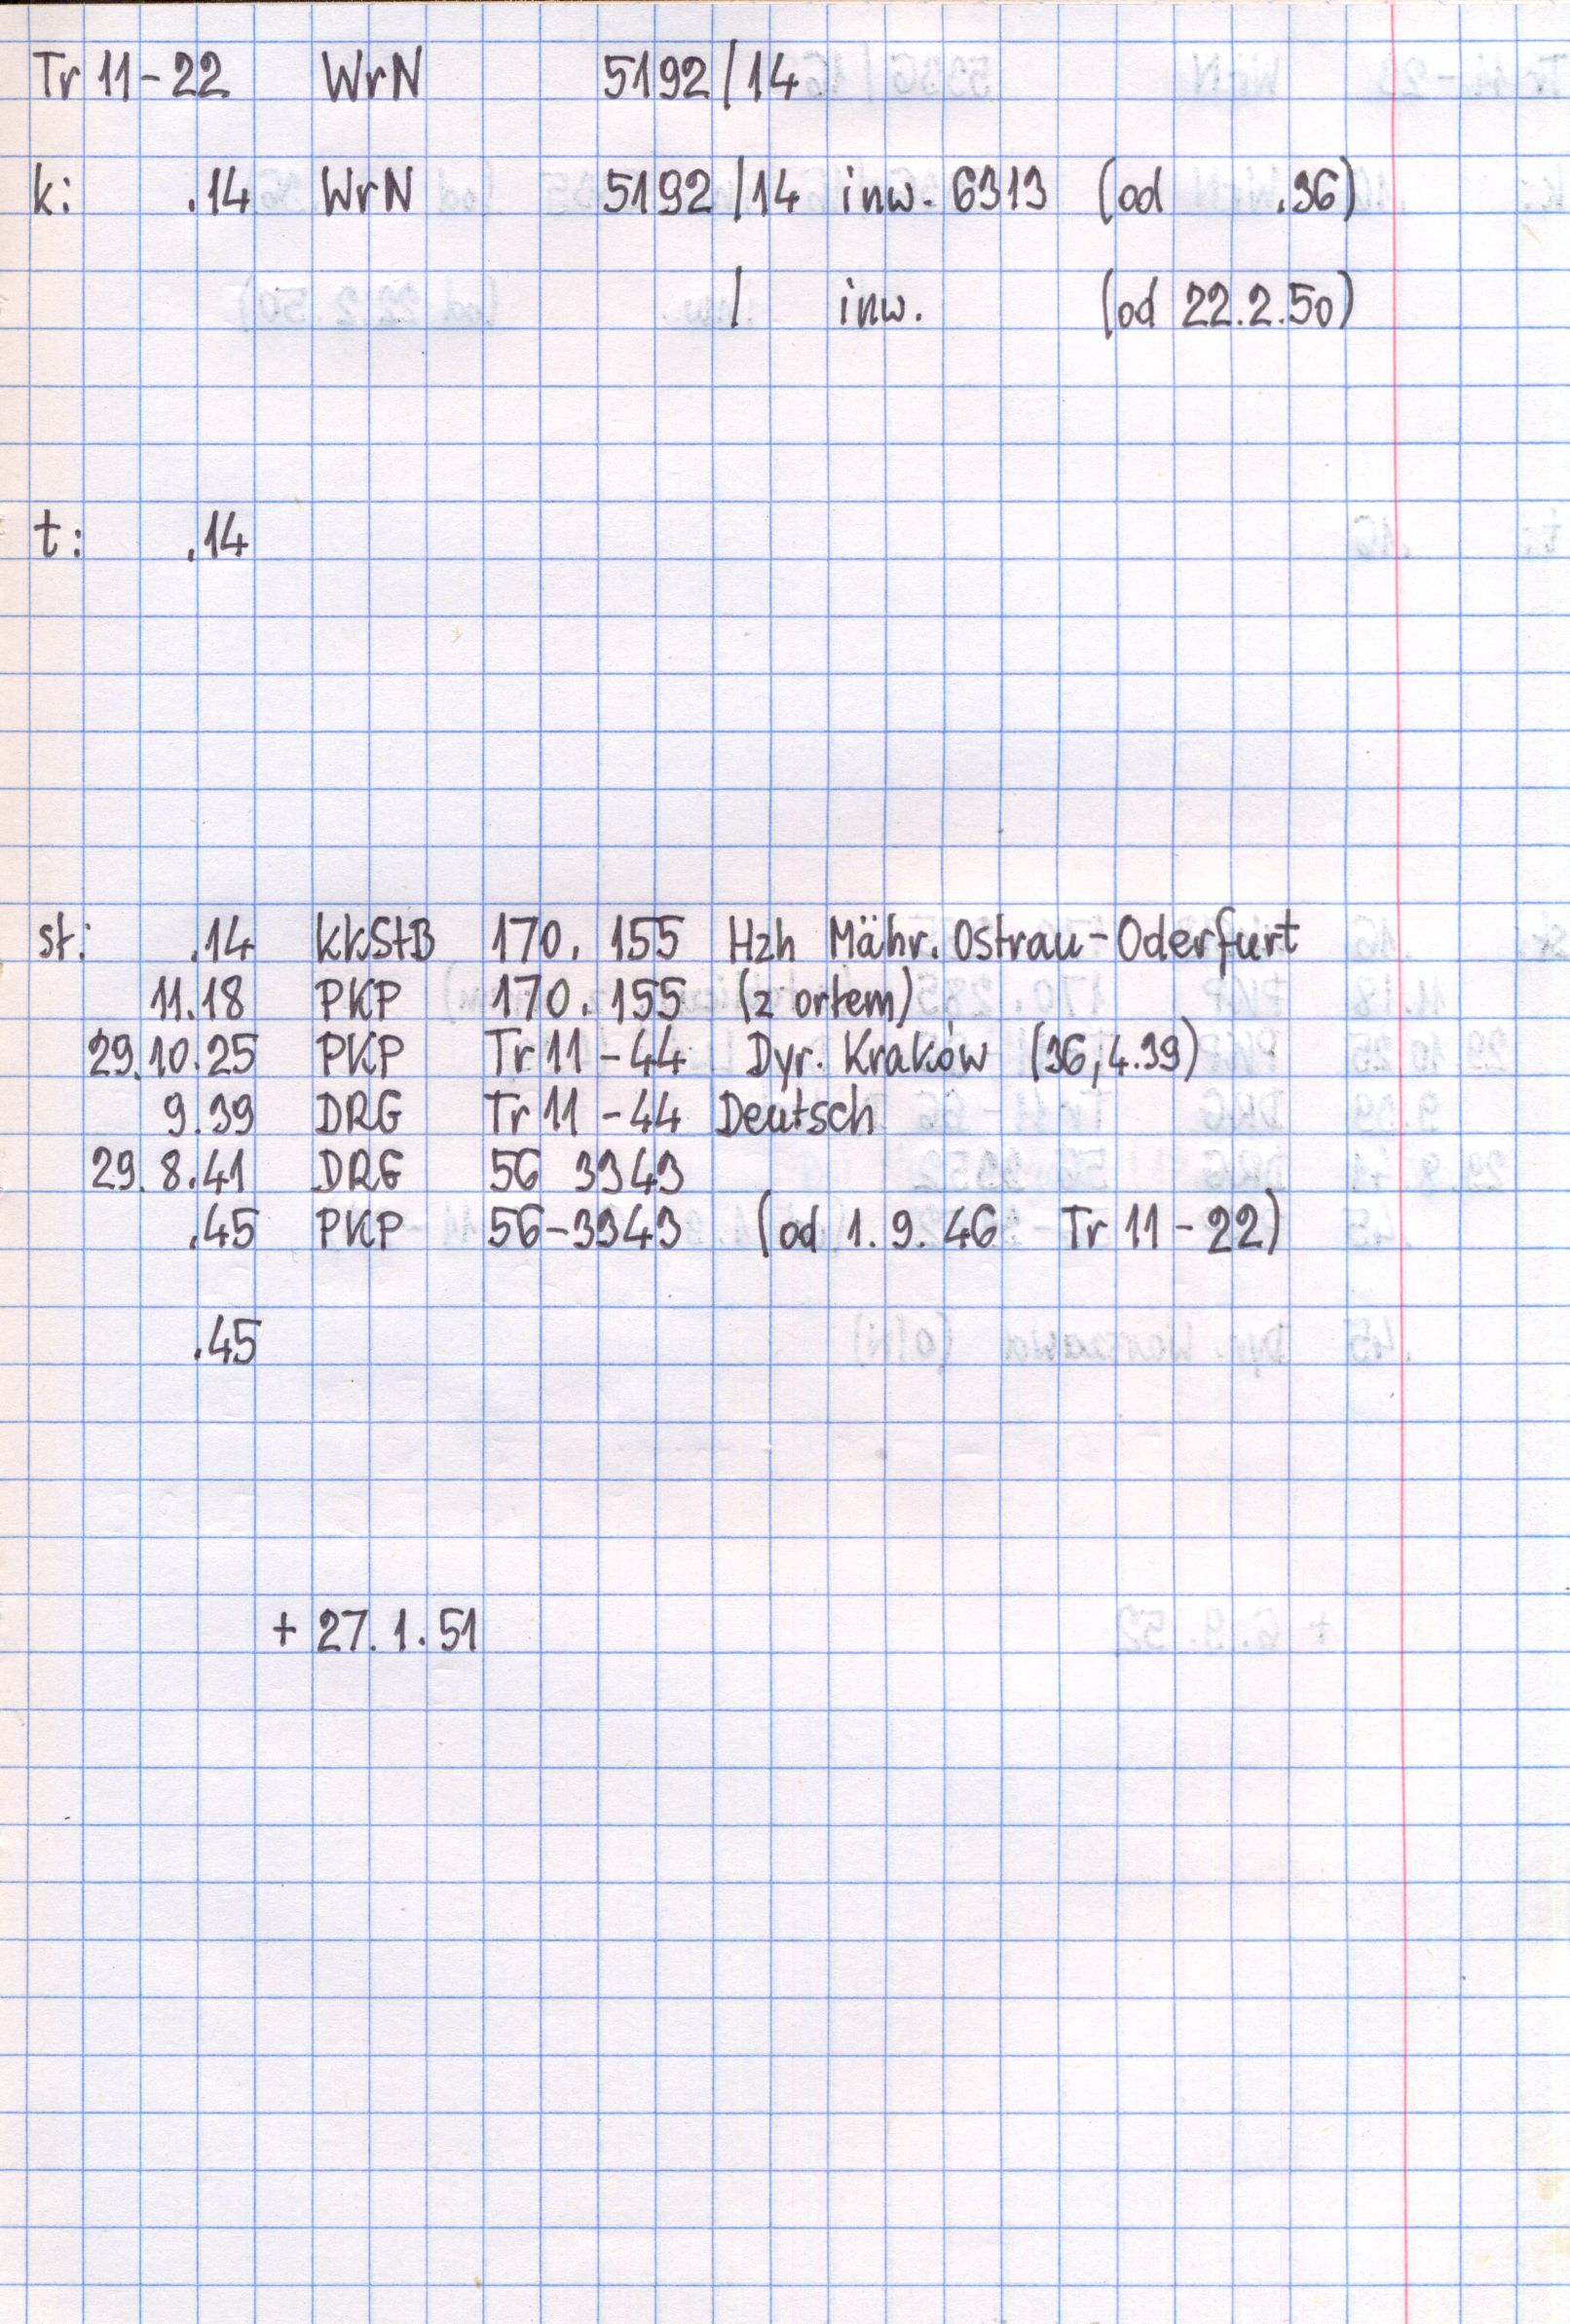 Tr 11-22 WrN 5192/14
k: .14 WrN 5192/14 inw. 6313 (od .36)
/ inw. (od 22.2.50)
t: .14
st: .14 kkStB 170.155 Hzh Mähr. Ostrau-Oderfurt
11.18 PKP 170.155 (z ortem)
29.10.25 PKP Tr 11-44 Dyr. Kraków (36,4.39)
9.39 DRG Tr 11-44 Deutsch
29.8.41 DRG 56 3343
.45 PKP 56-3343 (od 1.9.46 Tr 11-22)
.45
+ 27.1.51